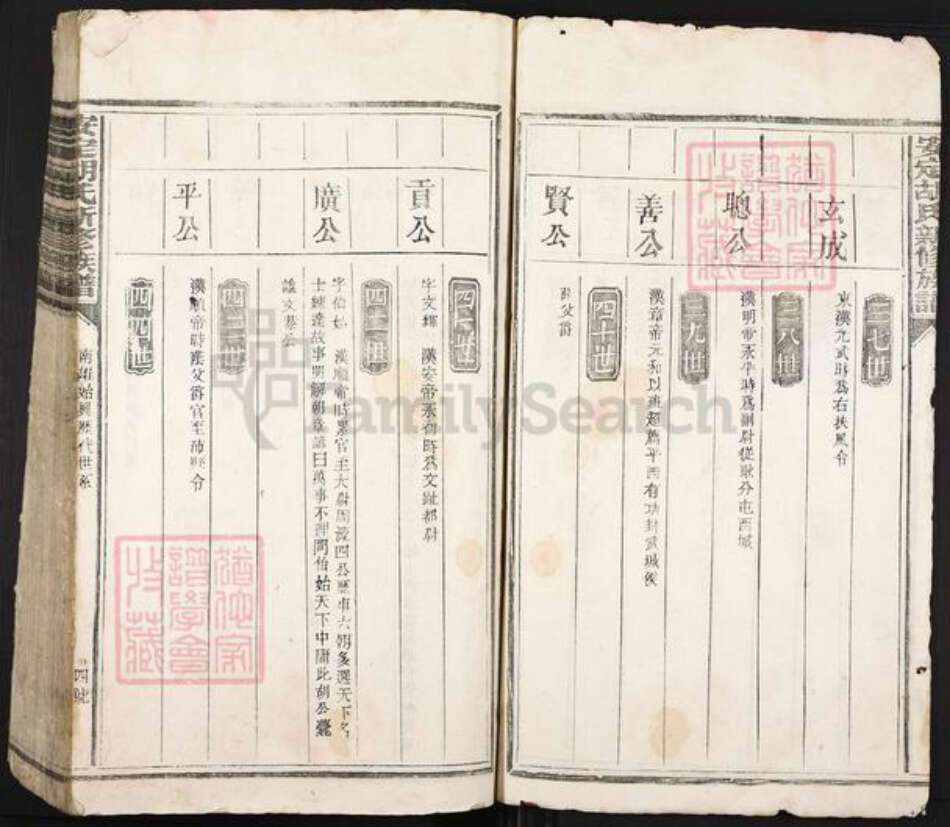 安定胡氏新修族譜
三七世
玄成
東漢光武時為右扶風令
三八世
聰公
漢明帝永平時為副尉從耿分屯西域
三九世
善公
漢章帝元和以班超薦平西有功封武城侯
四十世
賢公
父爵
四一世
貢公
字文輝 漢安帝永初時為交趾都尉
四二世
廣公
字伯始 漢順帝時累官至大尉周流四公歷事六朝多選天下名
士練達故事明解朝章諺曰萬事不理問伯始天下中庸此胡公薨
諡文恭公
四三世
平公
漢順帝時蔭父爵官至沛縣令
四四世
安定胡氏新修族譜
南雄始興歷代世系
四號
FamilySearch
譜學會
收藏
譜學會
收藏